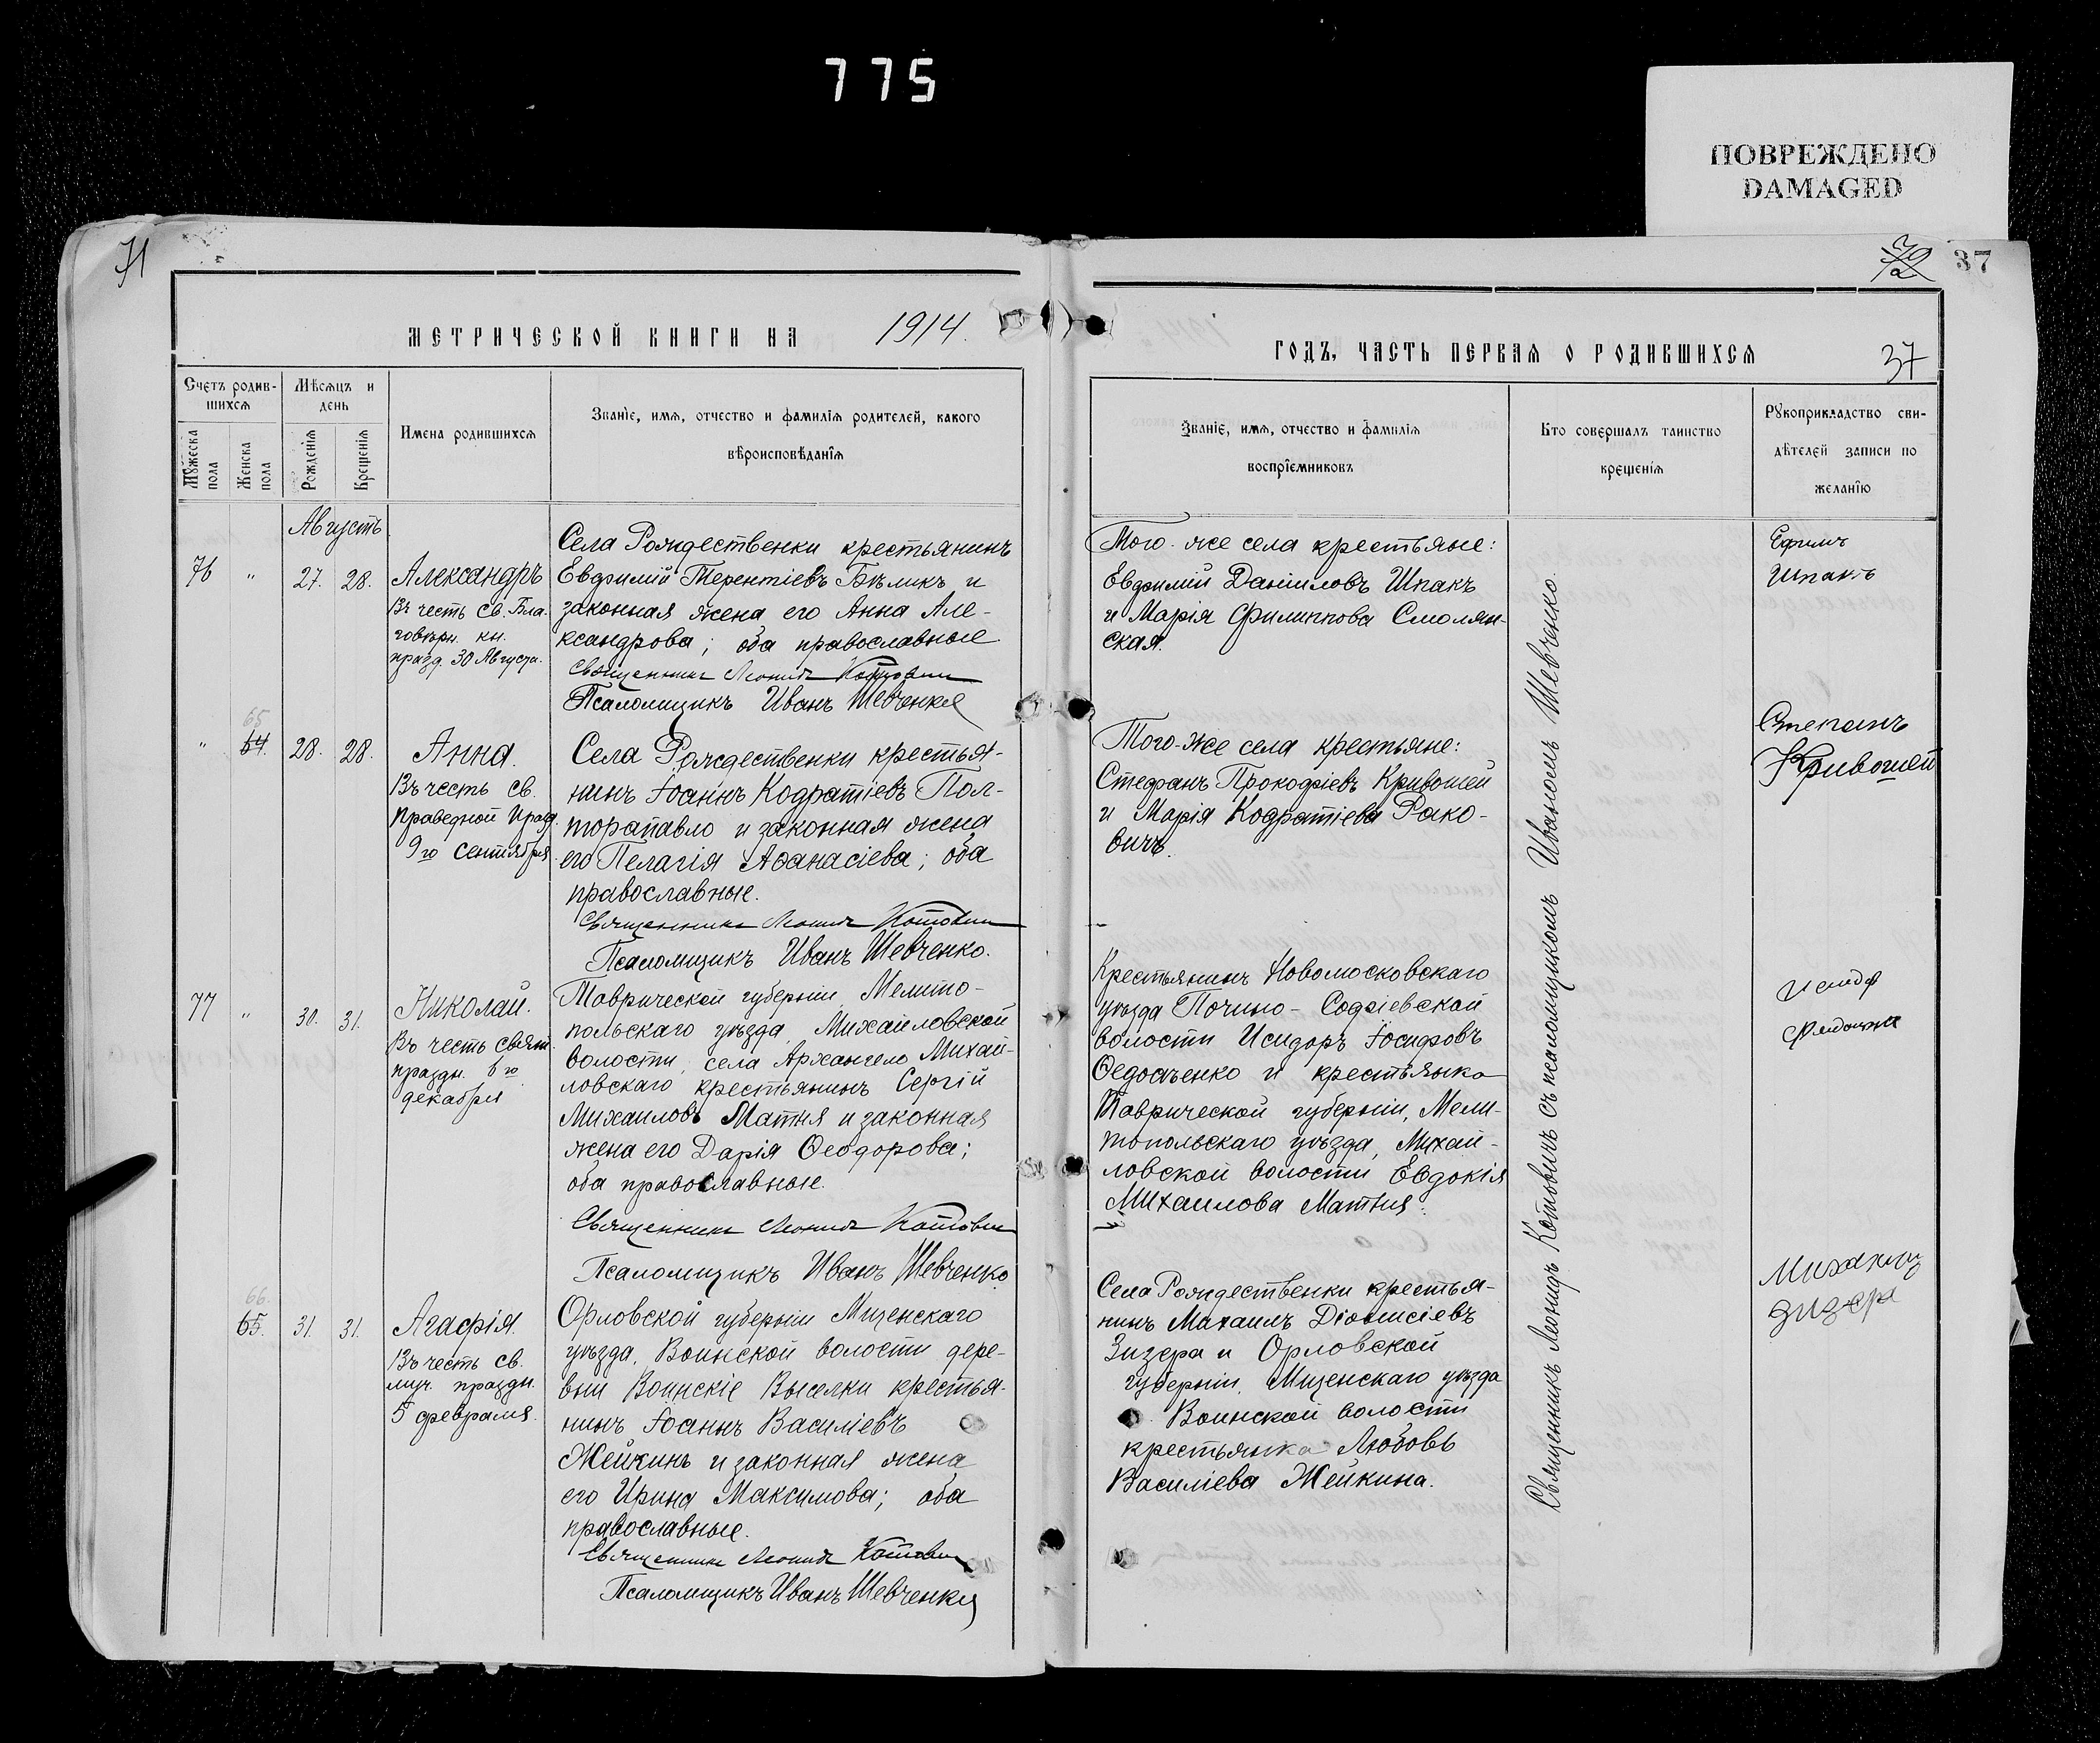 775
ПОВРЕЖДЕНО
DAMAGED
71
МЕТРИЧЕСКОЙ КНИГИ НА 1914.
Счетъ родив-
шихся
Мѣсяцъ и
день
Мужеска
пола
Женска
пола
Рожденія
Крещенія
Имена родившихся
Званіе, имя, отчество и фамилія родителей, какого
вѣроисповѣданія
Августъ
76 " 27. 28.
Александръ
Въ честь св. Бла-
говѣрн. кн.
празд. 30 Августа.
Села Рождественки крестьянинъ
Евфимій Терентіевъ Бѣликъ и
законная жена его Анна Але-
ксандрова; оба православные
Священникъ Леонидъ Котович
Псаломщикъ Иванъ Шевченко
65
" 64. 28. 28.
Анна.
Въ честь св.
праведной празд.
9го сентября
Села Рождественки крестья-
нинъ Іоаннъ Кодратіевъ Пол-
торапавло и законная жена
его Пелагія Аѳанасіева; оба
православные.
Священникъ Леонидъ Котович
Псаломщикъ Иванъ Шевченко.
77 " 30. 31.
Николай.
Въ честь свят.
праздн. 6го
декабря
Таврической губерніи, Мелито-
польскаго уѣзда, Михаиловской
волости, села Архангело Михай-
ловскаго крестьянинъ Сергій
Михаиловъ Матня и законная
жена его Дарія Ѳеодорова;
оба православные.
Священникъ Леонидъ Котович
Псаломщикъ Иванъ Шевченко
66.
65. 31. 31.
Агафія.
Въ честь св.
муч. праздн.
5 февраля.
Орловской губерніи Мценскаго
уѣзда, Воинской волости дере-
вни Воинскіе Выселки крестья-
нинъ Іоаннъ Василіевъ
Жейкинъ и законная жена
его Ирина Максимова; оба
православные.
Священникъ Леонидъ Котович
Псаломщикъ Иванъ Шевченко
37
ГОДЪ, ЧАСТЬ ПЕРВАЯ О РОДИВШИХСЯ
37
Званіе, имя, отчество и фамилія
воспріемниковъ
Кто совершалъ таинство
крещенія
Рукоприкладство сви-
дѣтелей записи по
желанію
Того-же села крестьяне:
Евфимій Даніиловъ Шпакъ
и Марія Филиппова Смолян-
ская.
Ефимъ
Шпакъ
Того-же села крестьяне:
Стефанъ Прокофіевъ Кривошей
и Марія Кодратіева Рако-
вичъ.
Степанъ
Кривошей
Крестьянинъ Новомосковскаго
уѣзда Почино-Софіевской
волости Исидоръ Іосифовъ
Ѳедосѣенко и крестьянка
Таврической губерніи, Мели-
топольскаго уѣзда, Михай-
ловской волости Евдокія
Михаилова Матня.
Села Рождественки крестья-
нинъ Михаилъ Діонисіевъ
Зизера и Орловской
губерніи, Мценскаго уѣзда
Воинской волости
крестьянка Любовь
Василіева Жейкина.
Михаилъ
Зизера
Священникъ Леонидъ Котовичъ съ псаломщикомъ Иваномъ Шевченко.